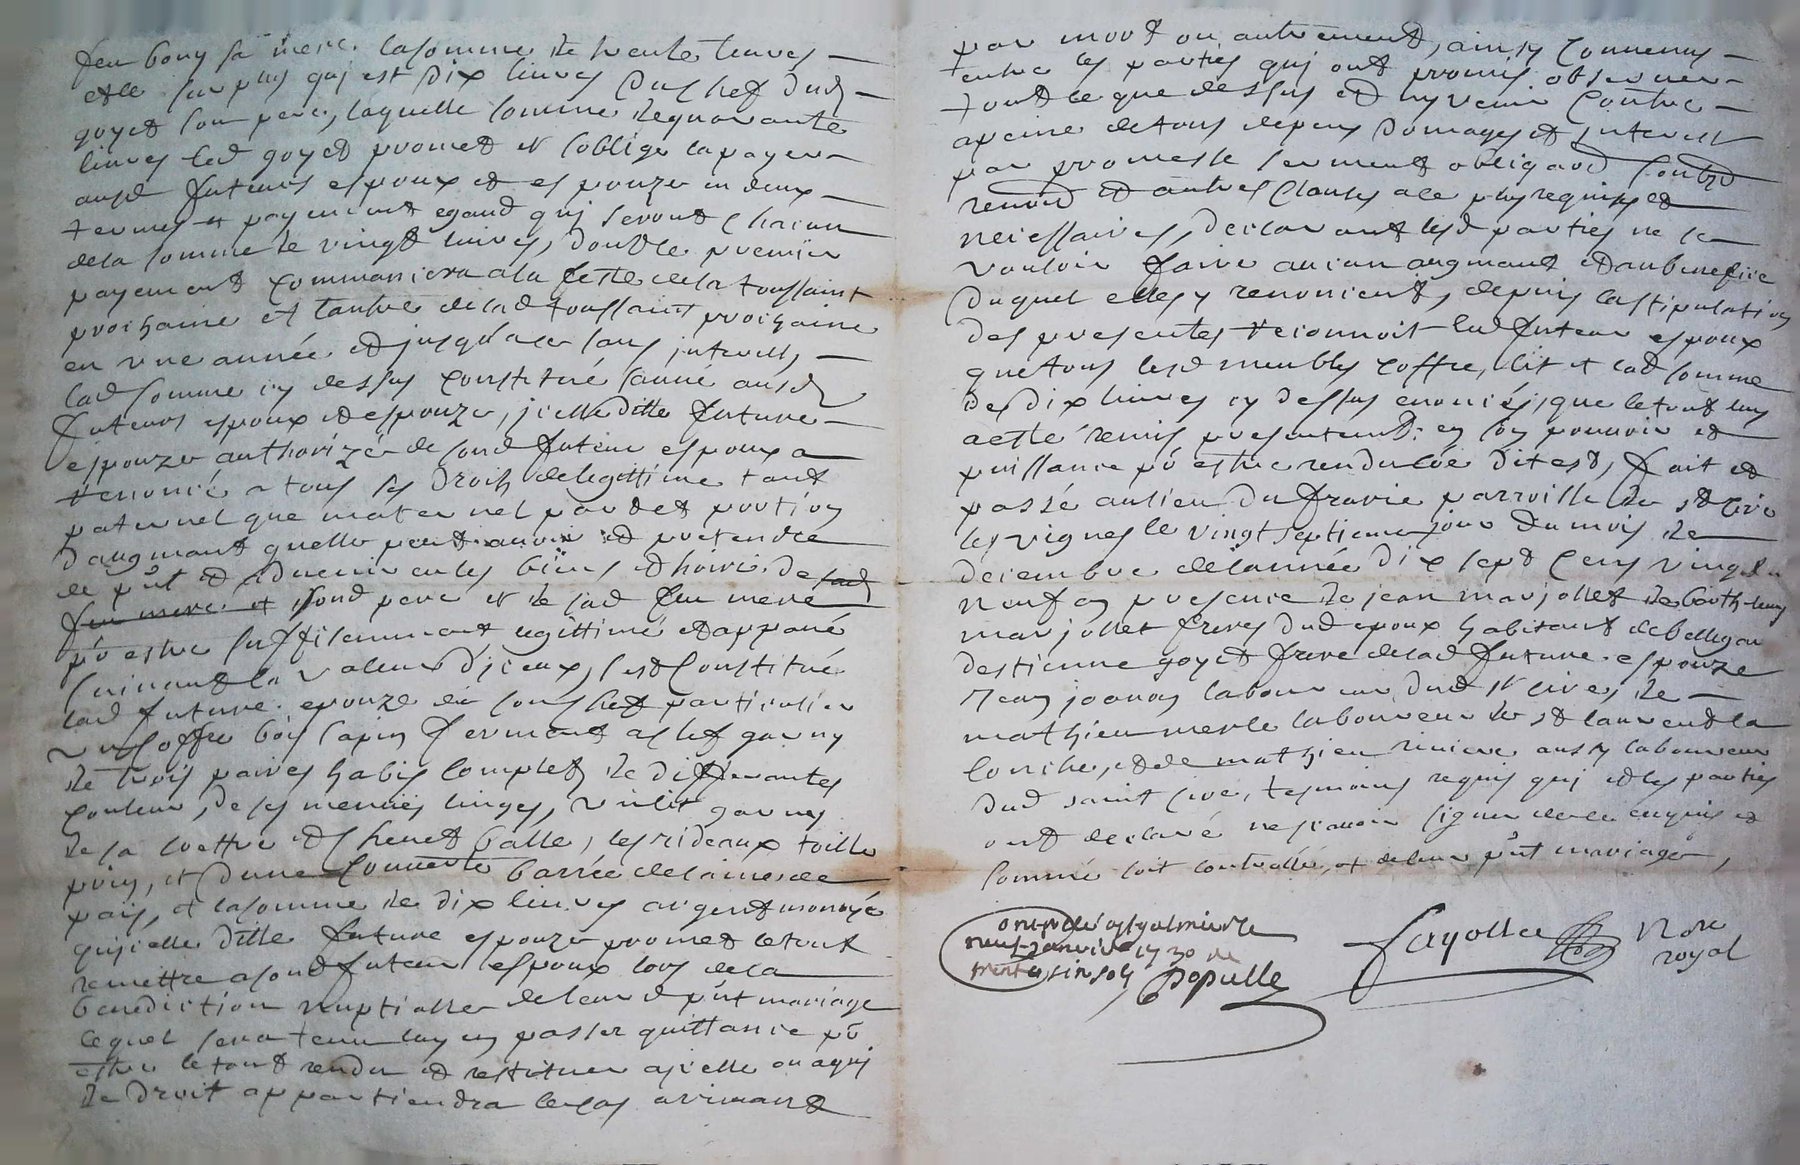 feu bony sa mere. la somme de trente livres
et le surplus qui est dix livres du chef dud
goyet son pere, laquelle somme de quarante
livres led goyet promet et soblige la payer
ausd futurs espoux et espouze en deux
termes et payement egaud qui seront chacun
de la somme de vingt livres, dont le premier
payement commancera a la feste de la toussaint
prochaine et lautre de lad toussaint prochaine
en une année et jusqu'a ce sans interests
lad somme cy dessus constitué donné ausd
futurs espoux et espouze, jcelle ditte future
espouze authorizée de sond futeur espoux a
renoncé a tous ses droits de legittime tant
paternel que maternel part et portion
d'augmant quelle peut avoir et pretendre
de pnt et advenir en les biens et hoirie de lad
feu mere et sond pere et de lad feu mere
pr estre suffisemment legittimé et appané
suivant la valeur d'jceux, sest constitué
lad future epouze de son chef particulier
un coffre bois sapin fermant a clef garny
de trois paires habis complets de differantes
couleur, de ses menues linges, un lit garny
de sa coettre et chevet balle, les rideaux toille
pris, et d'une couverte barrée de laine de
pais, et la somme de dix livres argent monoyé
qu'jcelle ditte future espouze promet le tout
remettre a sond futeur espoux lors de la
benediction nuptialle de leur d pnt mariage
lequel sera tenu luy en passer quittance pr
estre le tout rendu et restituer a jcelle ou a qui
de droit appartiendra le cas arrivant
par mort ou autrement, ainsy convenus
entre les parties qui ont promis observer
tout ce que dessus et ny venir contre
a peine de tous depens domages et interest
par promesse serment obligaon soubz
renon et autres clauses a ce plus requises et
necessaires, declarant lesd parties ne se
vouloir faire aucun augmant et au benefice
duquel elles y renoncent, depuis la stipulation
des presentes reconnoit led futeur espoux
que tous lesd meubles coffre, lit et lad somme
des dix livres cy dessus enoncés, que le tout luy
a esté remis presentement en son pouvoir et
puissance pr estre rendu co'e dit est, fait et
passé au lieu du fravie parroisse de st cire
les vignes le vingt septieme jour du mois de
decembre de l'année dix sept cens vingt
neuf en presence de jean marjollet de barthelemy
marjollet freres dud epoux habitant de bellegar
d'estienne goyet frere de lad future espouze
Jean joanon laboureur dud st cire, de
mathieu merle laboureur de st laurent la
conche, et de mathieu riviere aussy laboureur
dud saint cire, tesmoins requis qui et les parties
ont declaré ne scavoir signer de ce enquis et
sommé soit controllé, et de leur pnt mariage,
controllé a st galmier le
neuf janvier 1730 re
trente cinq sols Populle
fayolle Nore
royal